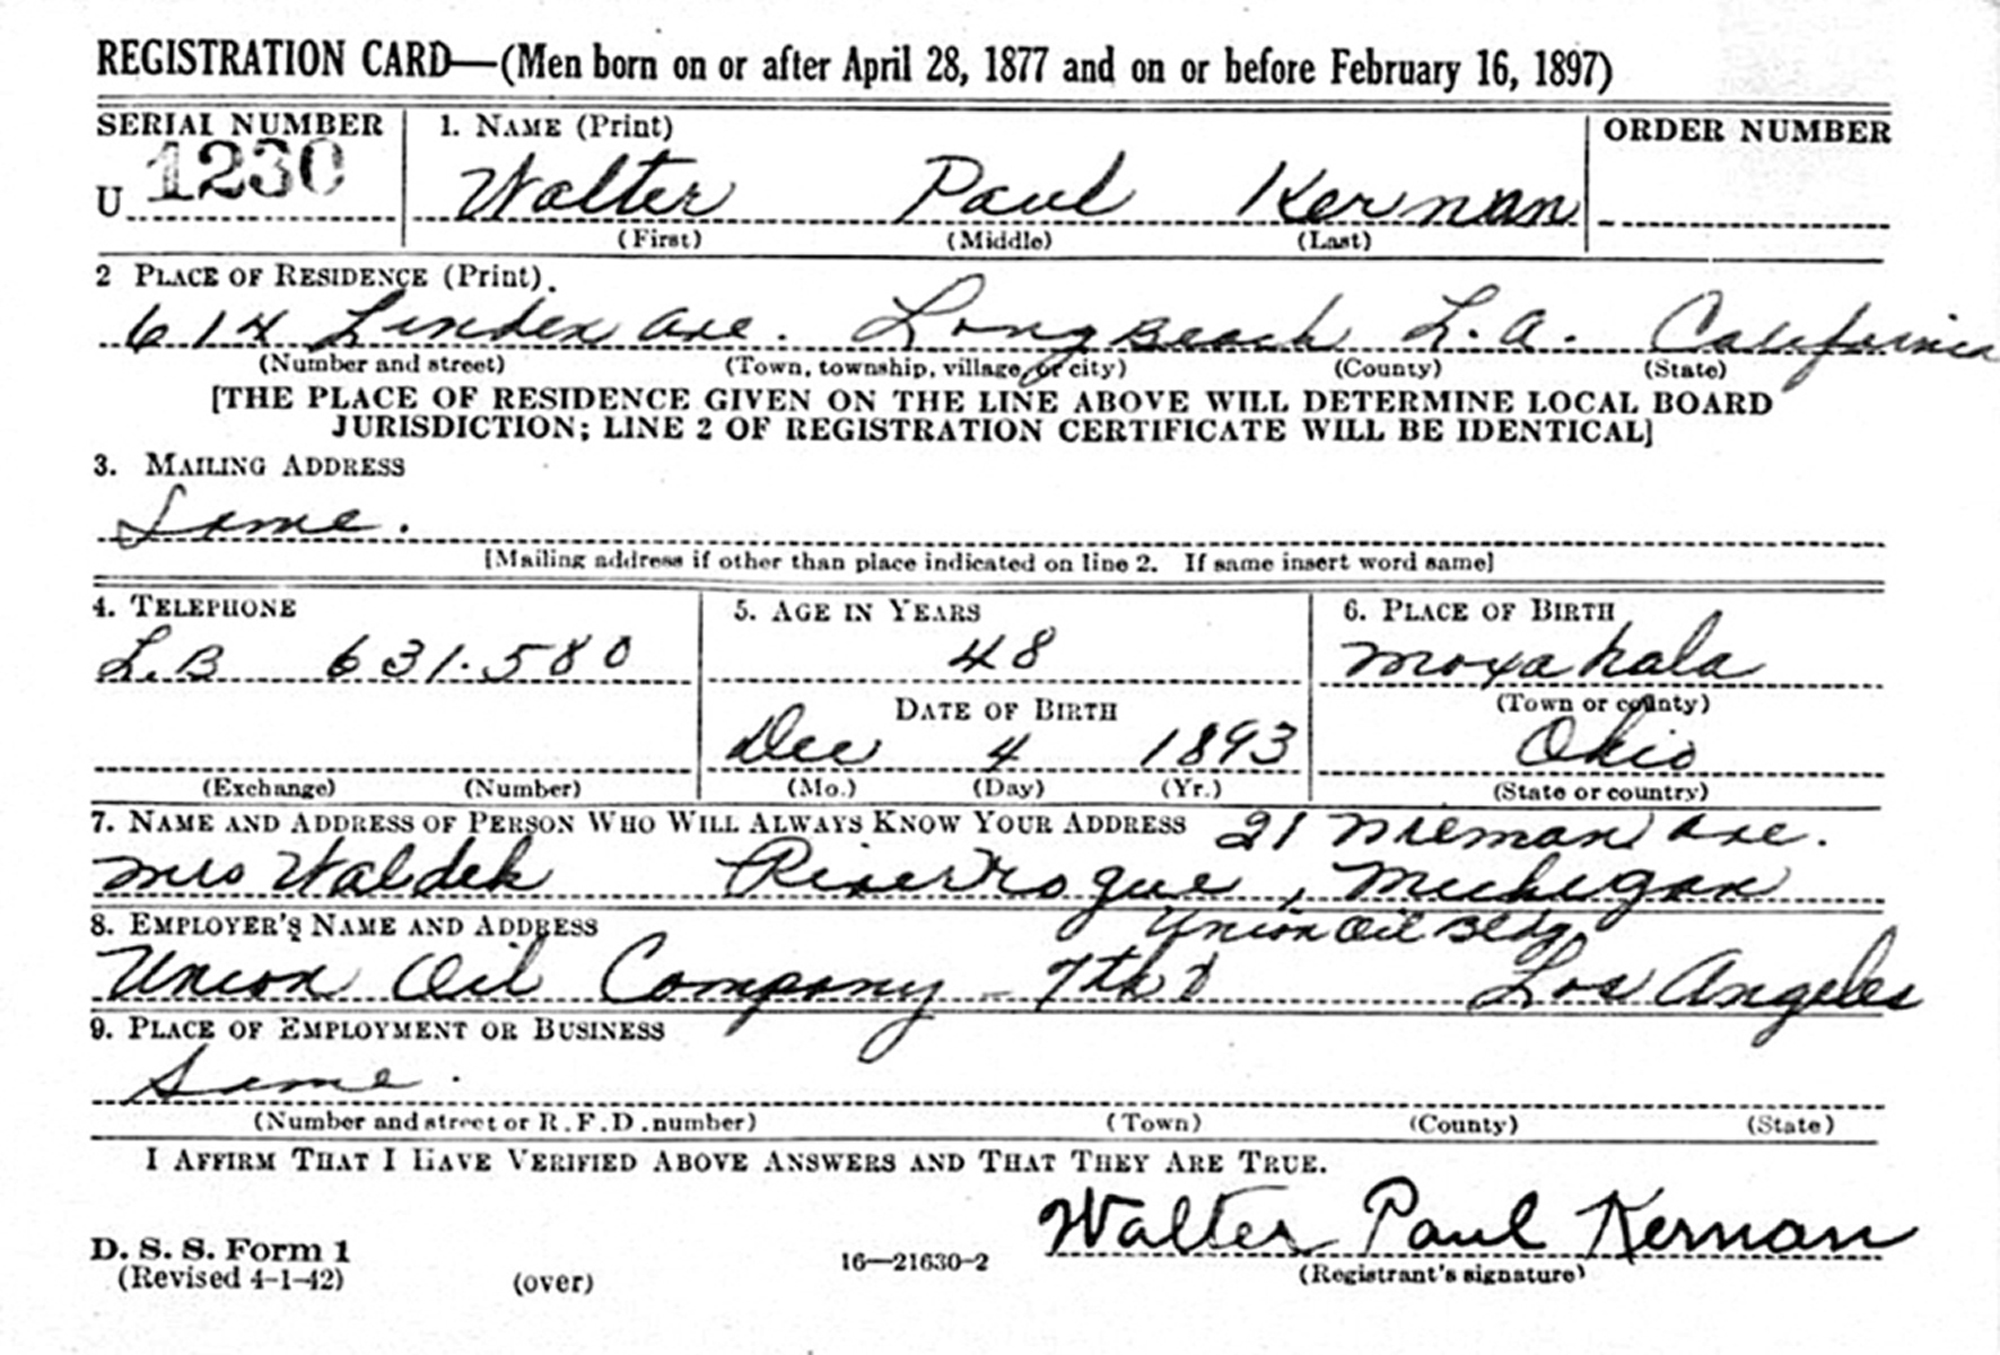 REGISTRATION CARD—(Men born on or after April 28, 1877 and on or before February 16, 1897)
SERIAL NUMBER
1. NAME (Print)
ORDER NUMBER
U 1230
Walter Paul Kernan
(First) (Middle) (Last)
2 PLACE OF RESIDENCE (Print)
614 Linden Ave. Long Beach L.A. California
(Number and street) (Town, township, village, or city) (County) (State)
[THE PLACE OF RESIDENCE GIVEN ON THE LINE ABOVE WILL DETERMINE LOCAL BOARD
JURISDICTION; LINE 2 OF REGISTRATION CERTIFICATE WILL BE IDENTICAL]
3. MAILING ADDRESS
Same.
[Mailing address if other than place indicated on line 2. If same insert word same]
4. TELEPHONE
5. AGE IN YEARS
6. PLACE OF BIRTH
L.B 631.580
48
Moxahala
(Town or county)
DATE OF BIRTH
Dec 4 1893
Ohio
(Exchange) (Number)
(Mo.) (Day) (Yr.)
(State or country)
7. NAME AND ADDRESS OF PERSON WHO WILL ALWAYS KNOW YOUR ADDRESS 21 Ave.
Mrs Waldek River rogue, Michigan
8. EMPLOYER'S NAME AND ADDRESS Union Oil Bldg
Union Oil Company - 7th Los Angeles
9. PLACE OF EMPLOYMENT OR BUSINESS
Same.
(Number and street or R.F.D. number) (Town) (County) (State)
I AFFIRM THAT I HAVE VERIFIED ABOVE ANSWERS AND THAT THEY ARE TRUE.
Walter Paul Kernan
D. S. S. Form 1
(Revised 4-1-42) (over) 16—21630-2 (Registrant's signature)